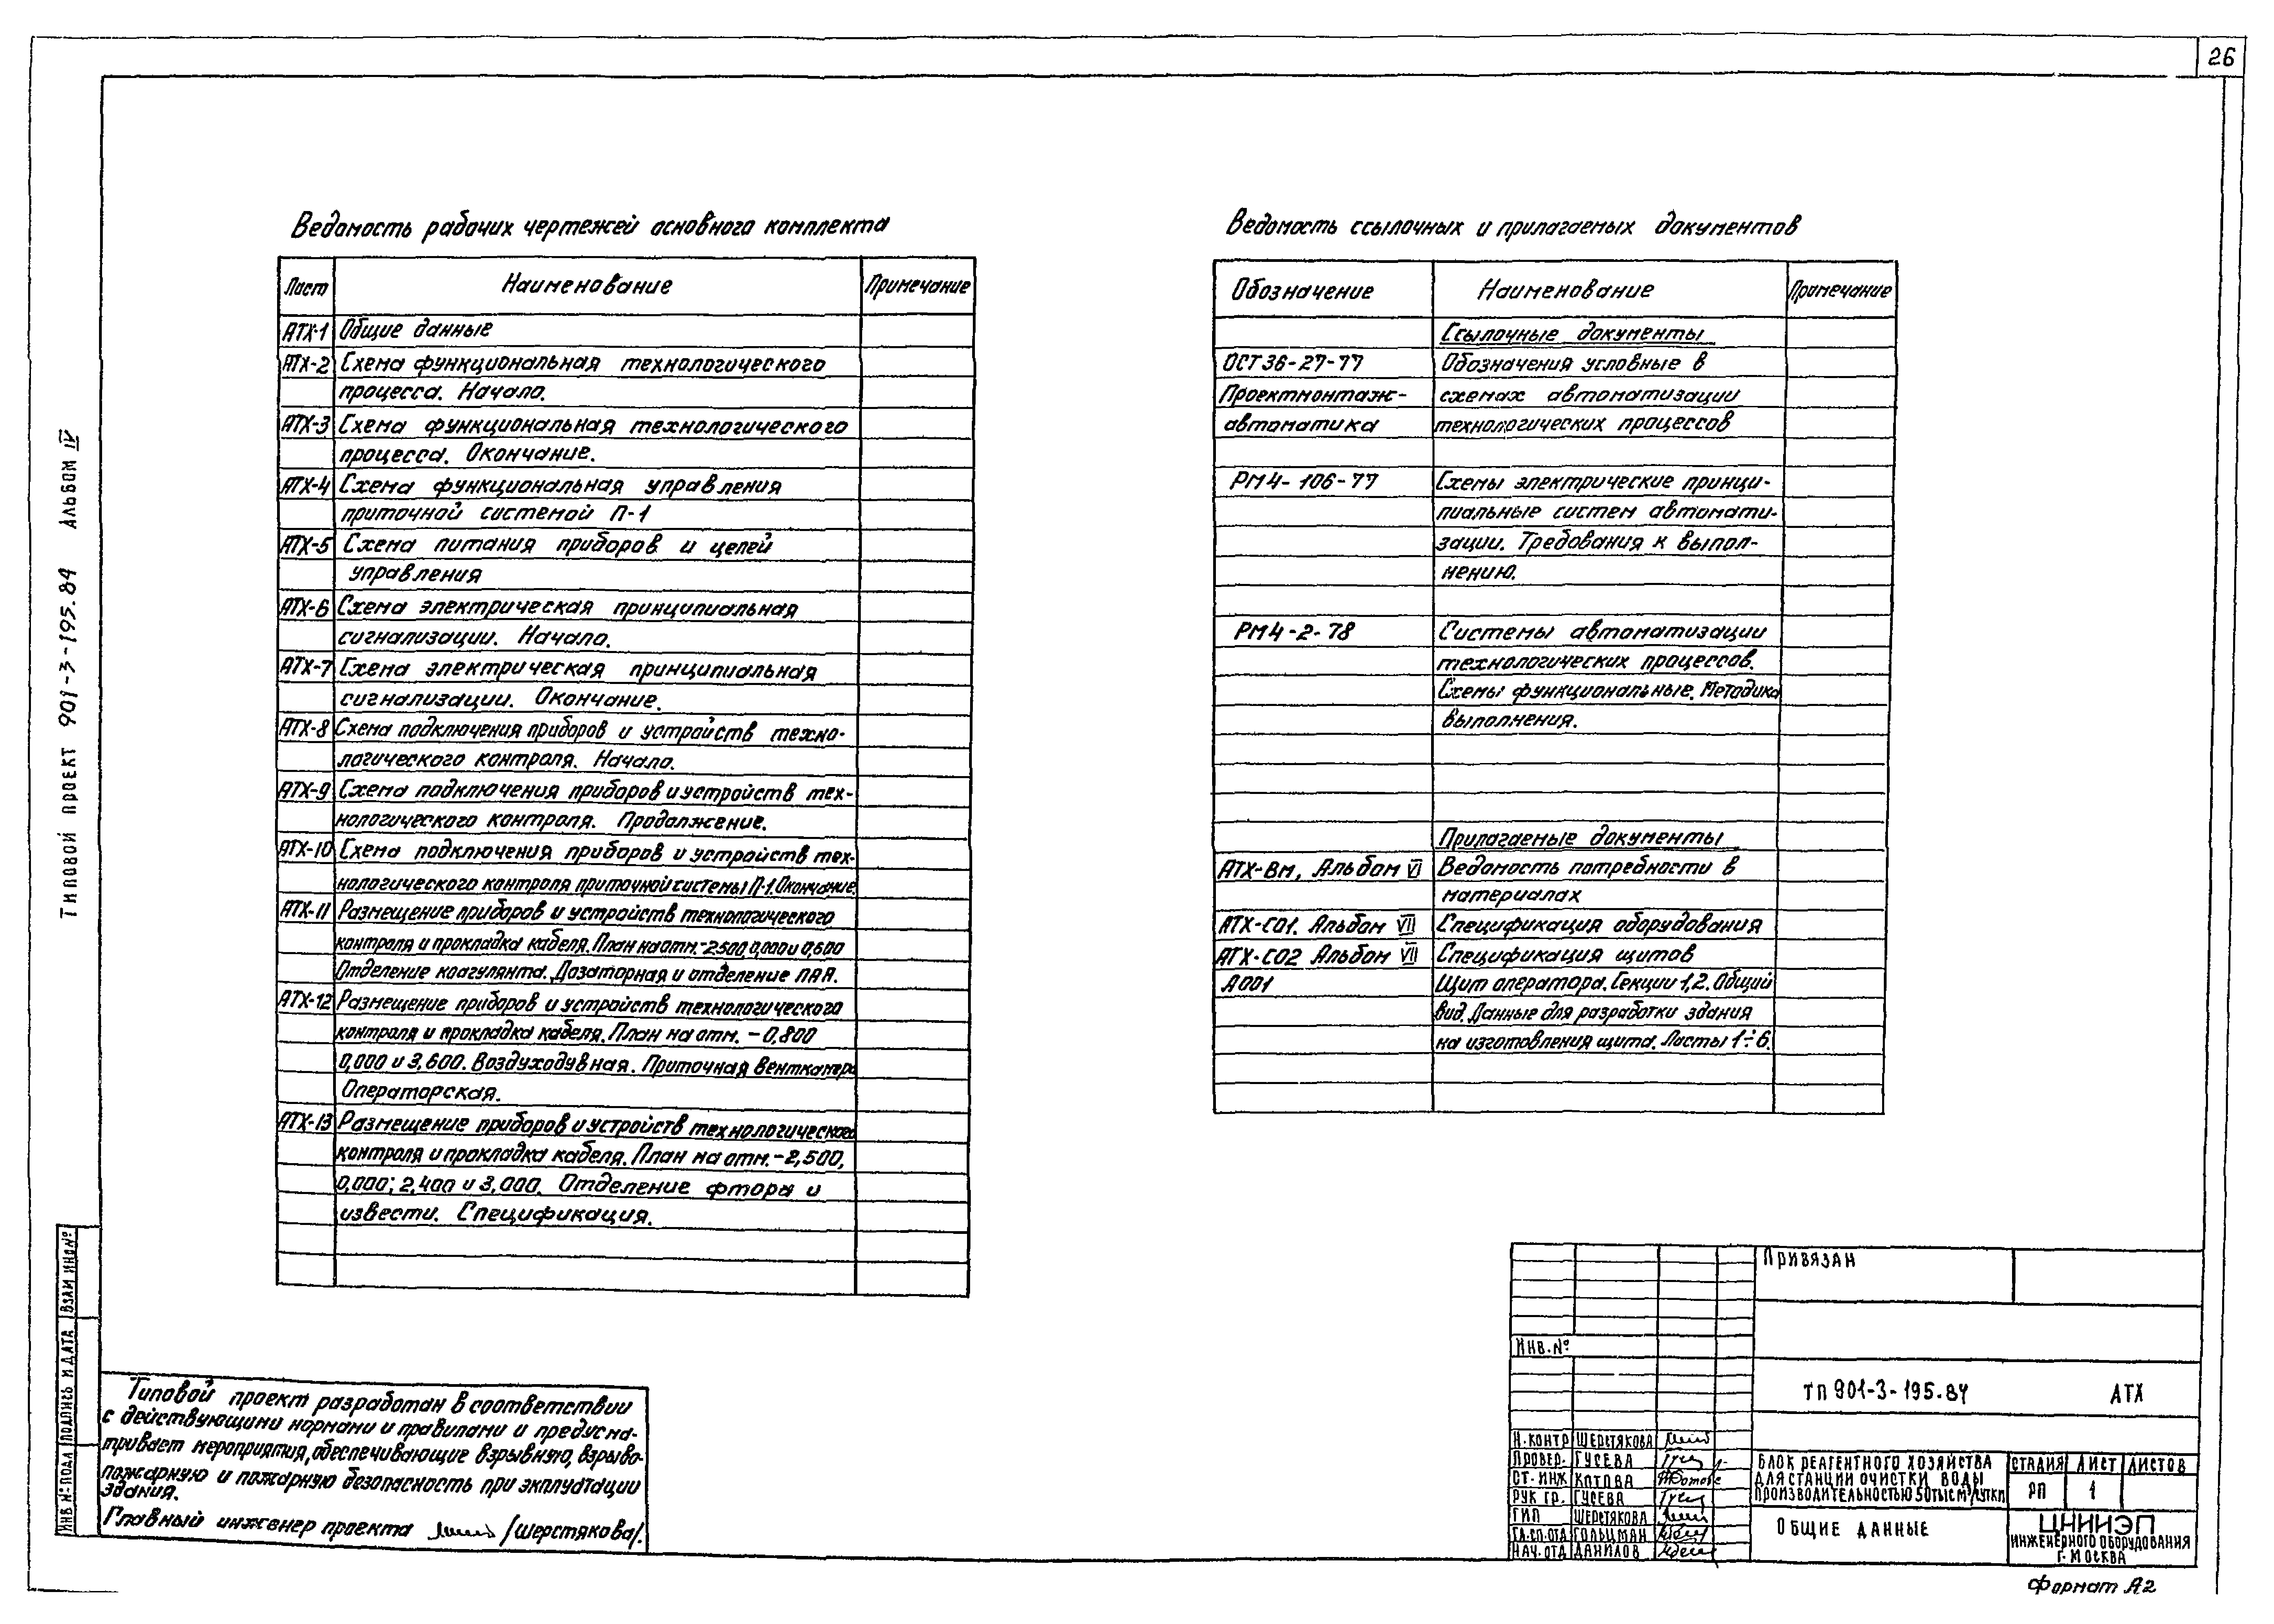 26
Типовой проект 901-3-195.84 Альбом IV
Ведомость рабочих чертежей основного комплекта
Лист Наименование Примечание
АТХ-1 Общие данные
АТХ-2 Схема функциональная технологического
процесса. Начало.
АТХ-3 Схема функциональная технологического
процесса. Окончание.
АТХ-4 Схема функциональная управления
приточной системой П-1
АТХ-5 Схема питания приборов и цепей
управления
АТХ-6 Схема электрическая принципиальная
сигнализации. Начало.
АТХ-7 Схема электрическая принципиальная
сигнализации. Окончание.
АТХ-8 Схема подключения приборов и устройств техно-
логического контроля. Начало.
АТХ-9 Схема подключения приборов и устройств тех-
нологического контроля. Продолжение.
АТХ-10 Схема подключения приборов и устройств тех-
нологического контроля приточной системы П-1. Окончание.
АТХ-11 Размещение приборов и устройств технологического
контроля и прокладка кабеля. План на отм.-2500, 0,000 и 0,600
Отделение коагулянта. Дозаторная и отделение ПАА.
АТХ-12 Размещение приборов и устройств технологического
контроля и прокладка кабеля. План на отм. -0,800
0,000 и 3,600. Воздуходувная. Приточная венткамера
Операторская.
АТХ-13 Размещение приборов и устройств технологического
контроля и прокладка кабеля. План на отм.-2,500,
0,000; 2,400 и 3,000. Отделение фторы и
извести. Спецификация.
Ведомость ссылочных и прилагаемых документов
Обозначение Наименование Примечание
Ссылочные документы
ОСТ 36-27-77 Обозначения условные в
Проектмонтаж- схемах автоматизации
автоматика технологических процессов
РМ4-106-77 Схемы электрические принци-
пиальные систем автомати-
зации. Требования к выпол-
нению.
РМ4-2-78 Системы автоматизации
технологических процессов.
Схемы функциональные. Методика
выполнения.
Прилагаемые документы
АТХ-ВМ, Альбом VI Ведомость потребности в
материалах
АТХ-СО1. Альбом VII Спецификация оборудования
АТХ-СО2 Альбом VII Спецификация щитов
А001 Щит оператора. Секции 1,2. Общий
вид. Данные для разработки здания
на изготовления щита. Листы 1÷6.
Типовой проект разработан в соответствии
с действующими нормами и правилами и предусма-
тривает мероприятия, обеспечивающие взрывную, взрыво-
пожарную и пожарную безопасность при эксплуатации
здания.
Главный инженер проекта /Шерстякова/.
Инв № подл Подпись и дата Взам инв №
Привязан
Инв. №
ТП 901-3-195.84 АТХ
Н. контр Шерстякова
Провер. Гусева
Ст. инж Котова
Рук гр. Гусева
ГИП Шерстякова
Гл. сп. отд Гольцман
Нач. отд Данилов
Блок реагентного хозяйства
для станции очистки воды
производительностью 50 тыс м³/сутки
Стадия Лист Листов
РП 1
Общие данные
ЦНИИЭП
инженерного оборудования
г. Москва
Формат А2